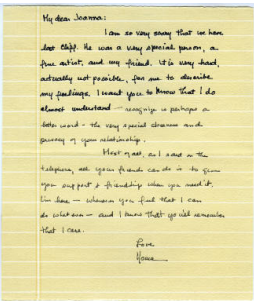 My dear Joanna:
I am so very sorry that we have
lost Cliff. He was a very special person, a
fine artist, and my friend. It is very hard,
actually not possible, for me to describe
my feelings. I want you to know that I do
almost understand — recognize is perhaps a
better word — the very special closeness and
of your relationship.
Most of all, as I said on the
telephone, all your friends can do is to give
you support & friendship when you need it.
I'm here — whenever you feel that I can
do whatever — and I know that you'll remember
that I care.
Love